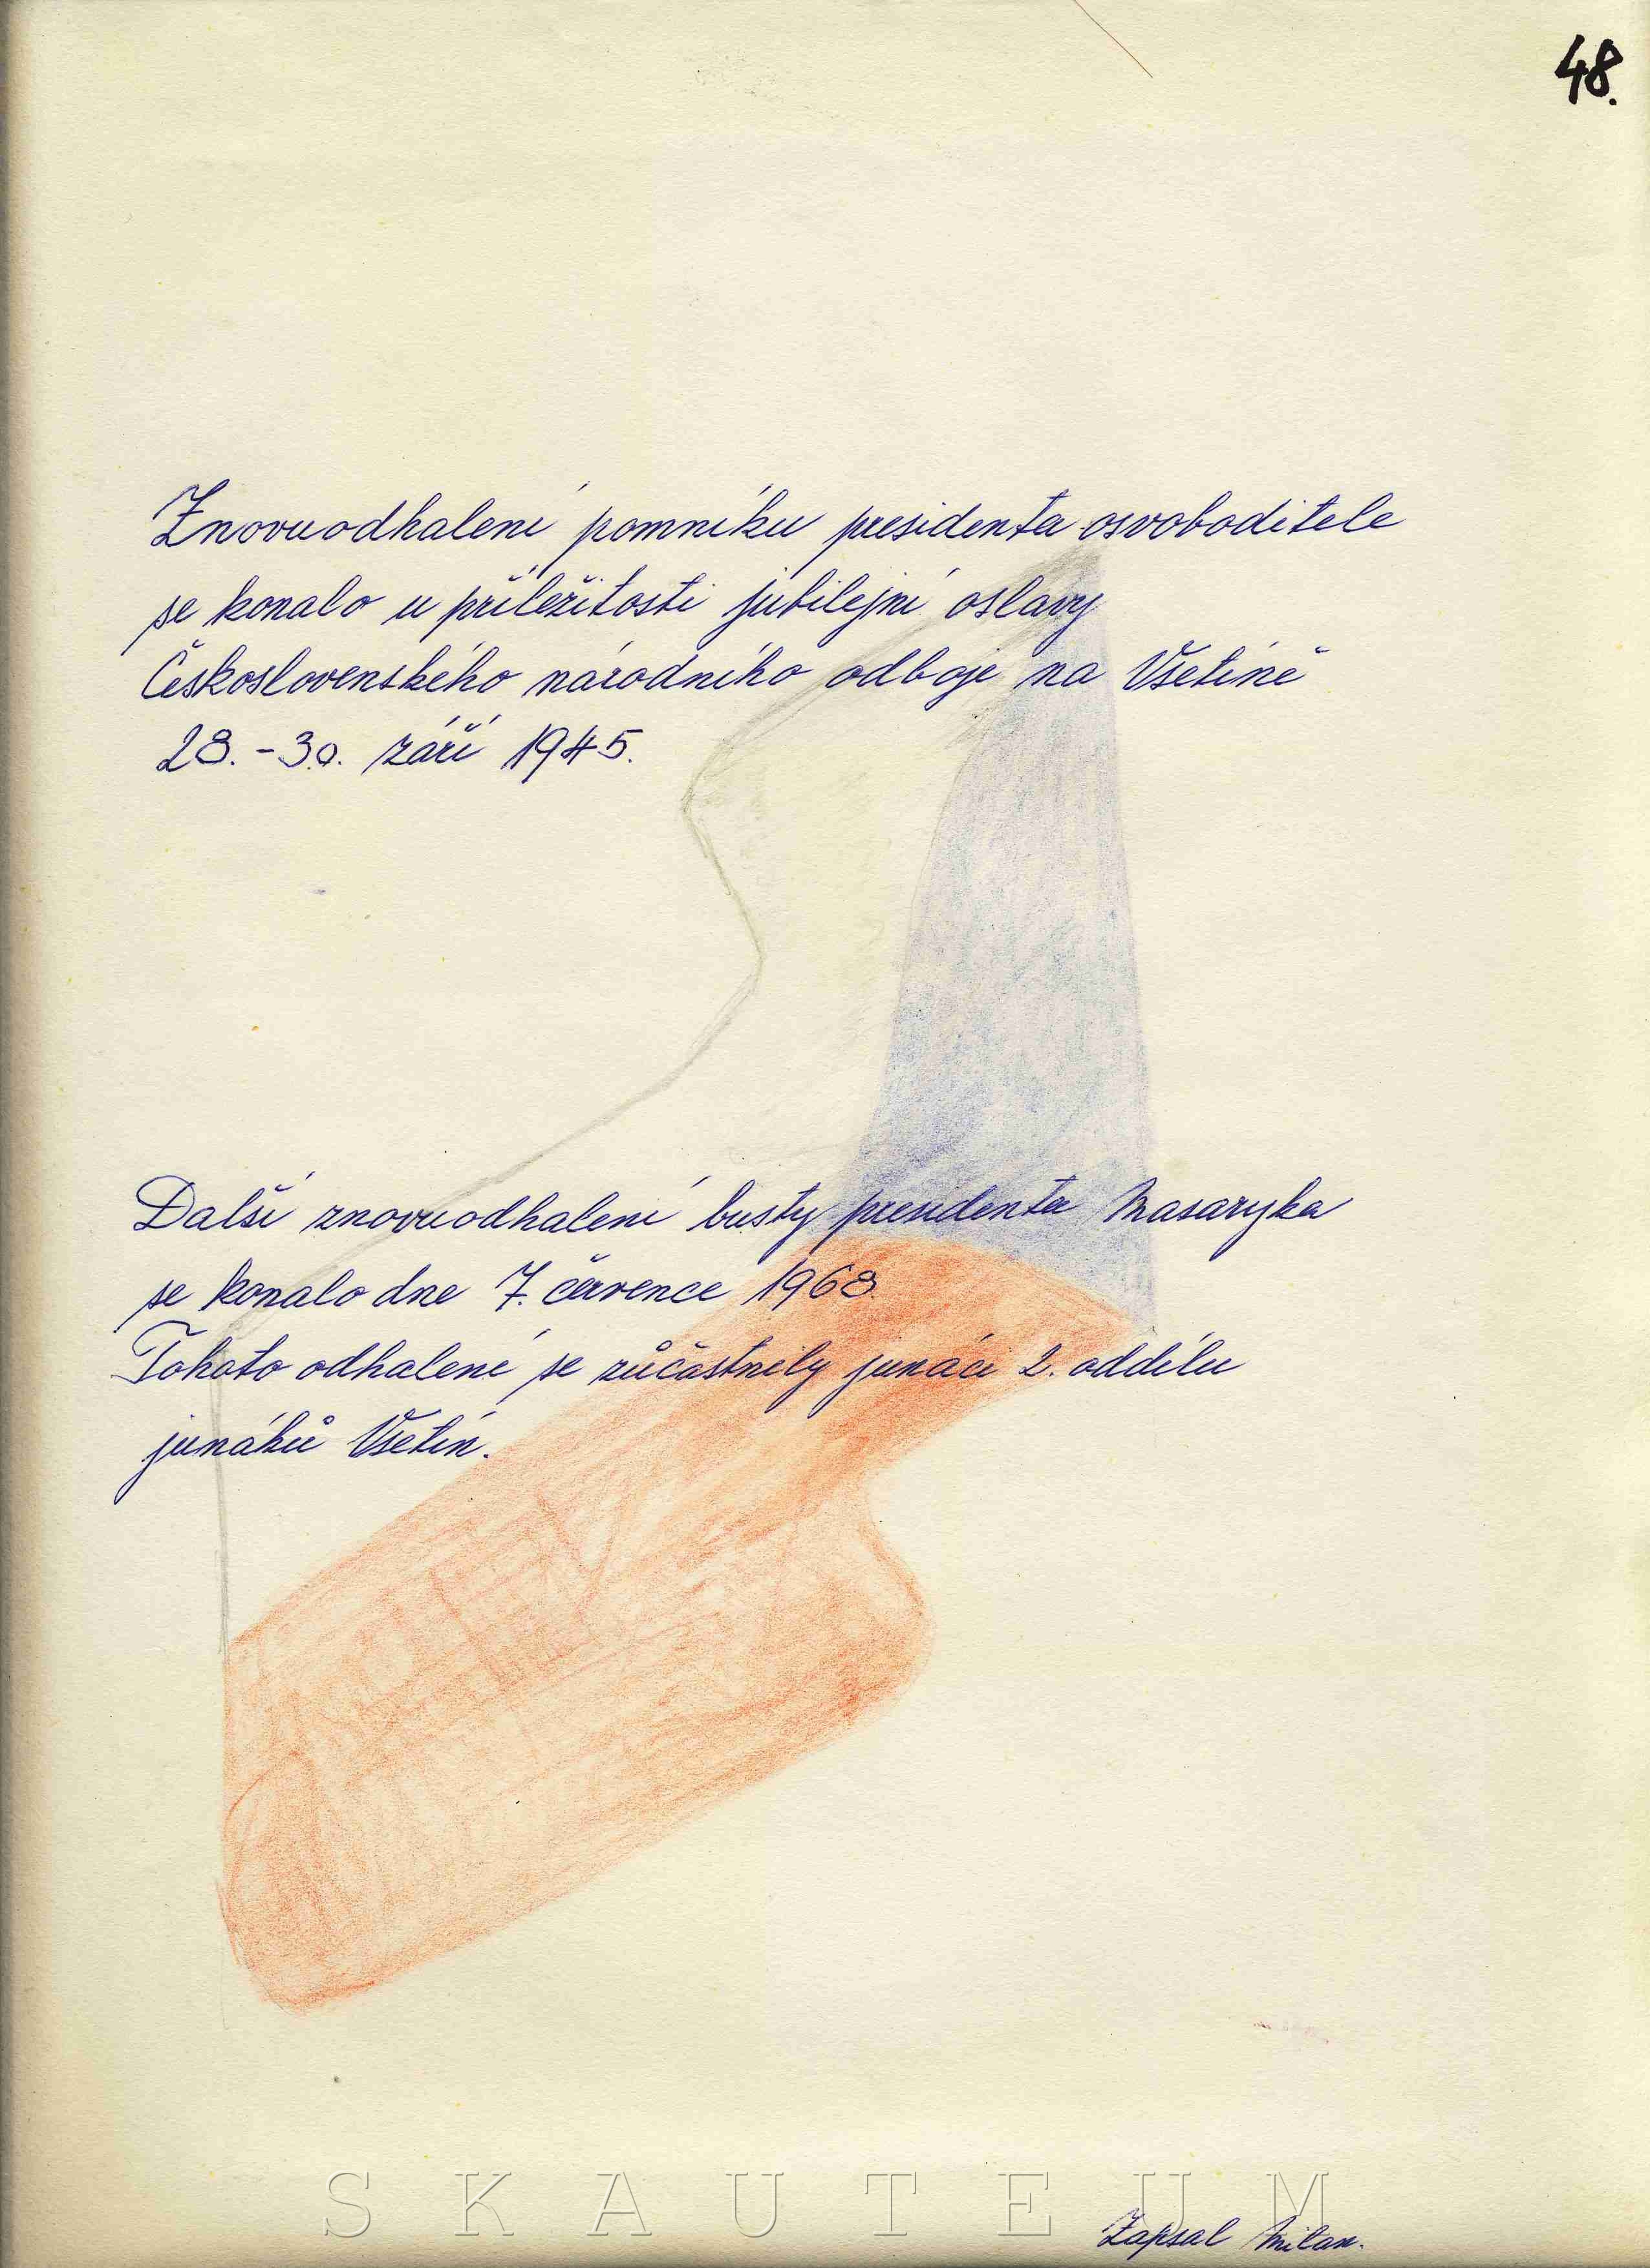 48.
Znovuodhalení pomníku presidenta osvoboditele
se konalo u příležitosti jubilejní oslavy
Československého národního odboje na Vsetíně
28.-30. září 1945.
Další znovuodhalení busty presidenta Masaryka
se konalo dne 7. července 1968.
Tohoto odhalení se zúčastnily junáci 2. oddílu
junáků Vsetín.
SKAUTEUM
Zapsal Milan.